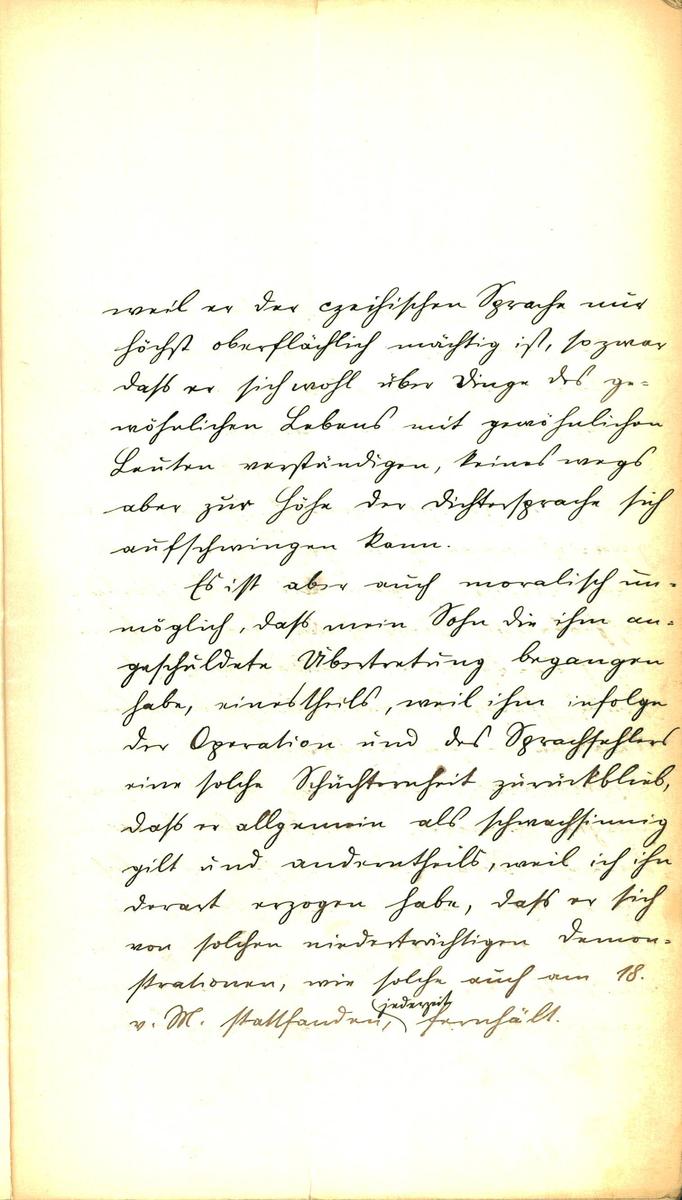 weil er der czechischen Sprache nur
höchst oberflächlich mächtig ist, so zwar
daß er sich wohl über Dinge des ge-
wöhnlichen Lebens mit gewöhnlichen
Leuten verständigen, keineswegs
aber zur Höhe der Dichtersprache sich
aufschwingen kann.
Es ist aber auch moralisch un-
möglich, daß mein Sohn die ihm an-
geschuldete Übertretung begangen
habe, einestheils, weil ihm infolge
der Operation und des Sprachfehlers
eine solche Schüchternheit zurückblieb,
daß er allgemein als schwachsinnig
gilt und anderntheils, weil ich ihn
derart erzogen habe, daß er sich
von solchen niederträchtigen Demon-
strationen, wie solche auch am 18.
jederzeit
v. M. stattfanden, fernhält.